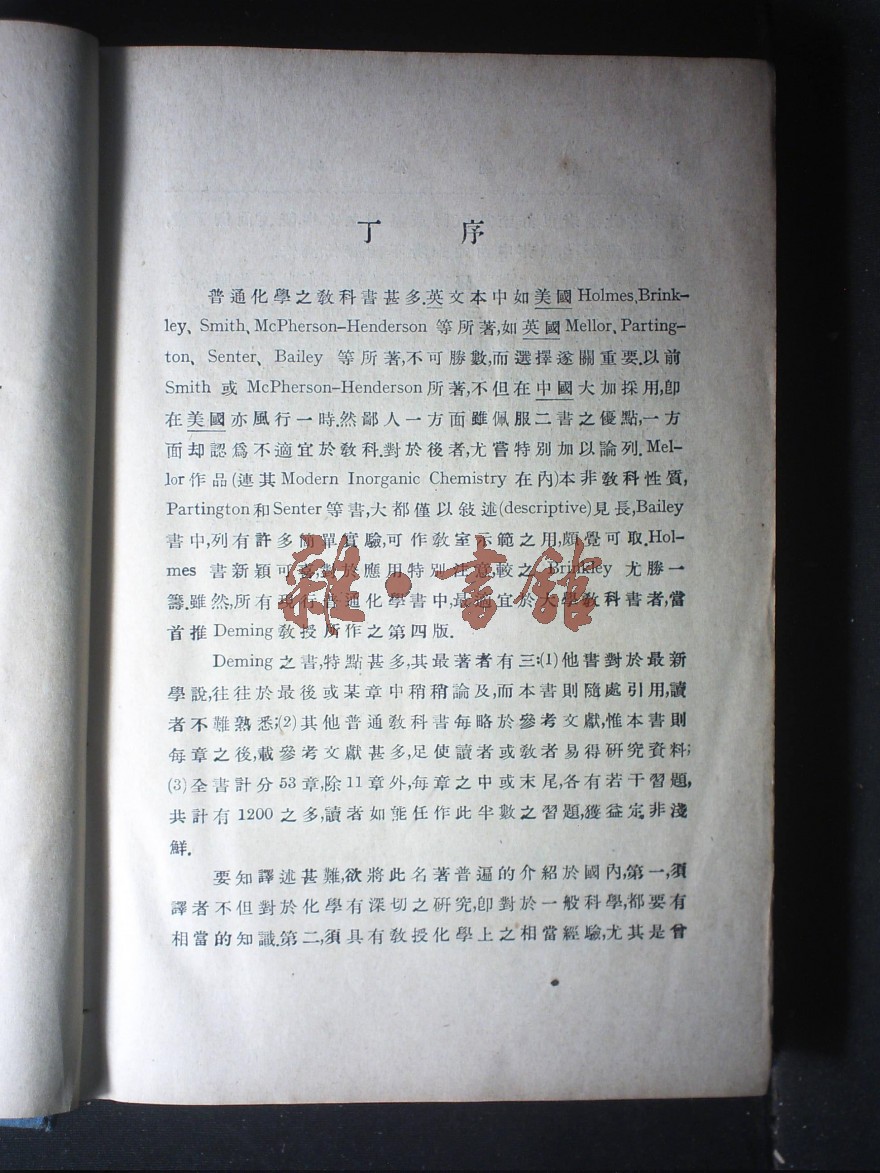 丁 序
普通化學之敎科書甚多.英文本中如美國Holmes、Brink-
ley、Smith、McPherson-Henderson 等所著,如英國Mellor、Parting-
ton、Senter、Bailey 等所著,不可勝數,而選擇遂關重要.以前
Smith 或 McPherson-Henderson所著,不但在中國大加採用,卽
在美國亦風行一時.然鄙人一方面雖佩服二書之優點,一方
面却認爲不適宜於敎科.對於後者,尤嘗特別加以論列.Mel-
lor作品(連其Modern Inorganic Chemistry 在內)本非敎科性質,
Partington和Senter等書,大都僅以敍述(descriptive)見長,Bailey
書中,列有許多簡單實驗,可作敎室示範之用,頗覺可取.Hol-
mes 書新穎可喜,對於應用特別注意,較之 Brinkley 尤勝一
籌.雖然,所有現行普通化學書中,最適宜於大學敎科書者,當
首推Deming敎授所作之第四版.
Deming之書,特點甚多,其最著者有三:(1)他書對於最新
學說,往往於最後或某章中稍稍論及,而本書則隨處引用,讀
者不難熟悉;(2)其他普通敎科書每略於參考文獻,惟本書則
每章之後,載參考文獻甚多,足使讀者或敎者易得研究資料;
(3)全書計分53章,除11章外,每章之中或末尾,各有若干習題,
共計有1200之多,讀者如能任作此半數之習題,獲益定非淺
鮮.
要知譯述甚難,欲將此名著普遍的介紹於國內,第一,須
譯者不但對於化學有深切之硏究,卽對於一般科學,都要有
相當的知識.第二,須具有敎授化學上之相當經驗,尤其是曾
雜·書館